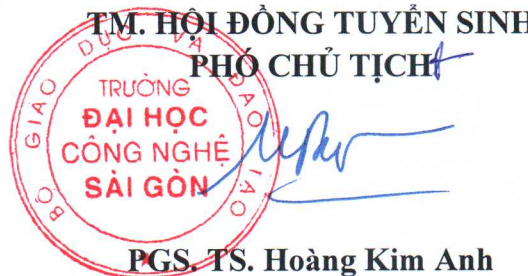 TM. HỘI ĐỒNG TUYỂN SINH
PHÓ CHỦ TỊCH
BỘ GIÁO DỤC VÀ ĐÀO TẠO
TRƯỜNG
ĐẠI HỌC
CÔNG NGHỆ
SÀI GÒN
PGS. TS. Hoàng Kim Anh